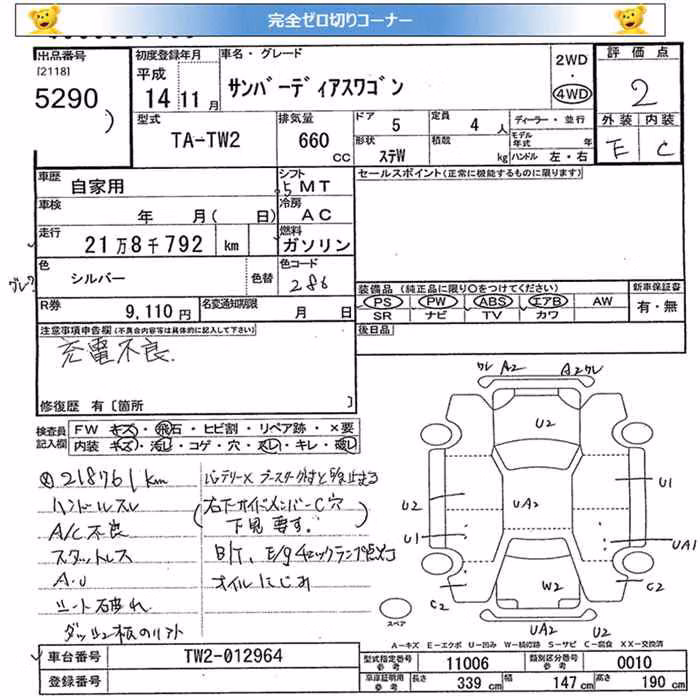 完全ゼロ切りコーナー
出品番号
[2118]
5290
初度登録年月
平成
14 11 月
車名・グレード
サンバーディアスワゴン
2WD
・
4WD
評価点
2
外装 内装
E C
型式
TA-TW2
排気量
660
CC
ドア
5
定員
4 人
形状
ステW
積載
kg
ディーラー・並行
モデル年式 年
ハンドル 左・右
車歴
自家用
シフト
5 MT
セールスポイント(正常に機能するものに限ります)
車検
年 月( 日)
冷房
AC
走行
21万8千792 km
燃料
ガソリン
色
シルバー
色替
色コード
286
装備品 (純正品に限り○をつけてください)
新車保証書
PS PW ABS エアB AW
有・無
SR ナビ TV カワ
R券
9,110 円
名変通知期限
月 日
後日品
注意事項申告欄(不具合内容等は具体的に記入して下さい)
充電不良.
修復歴 有〔箇所 〕
検査員記入欄
FW キズ・飛石・ヒビ割・リペア跡・×要
内装 キズ・汚し・コゲ・穴・スレ・キレ・破レ
218761km
ハンドルスレ
A/C不良
スタットレス
A.U
シート破れ
ダッシュ板のリフト
バッテリーX
右下サイドメンバーC穴
下見要す.
オイルにじみ
ワレ A2 A2ワレ
U2
U2 UA2 U1
U1 UA1
W2
C2 C2
UA2 U2
スペア
A-キズ E-エクボ U-凹み W-補修跡 S-サビ C-腐食 XX-交換済
車台番号
TW2-012964
型式指定番号
参考
11006
類別区分番号
参考
0010
登録番号
車庫証明用
参考
長さ
339 cm
幅
147 cm
高さ
190 cm